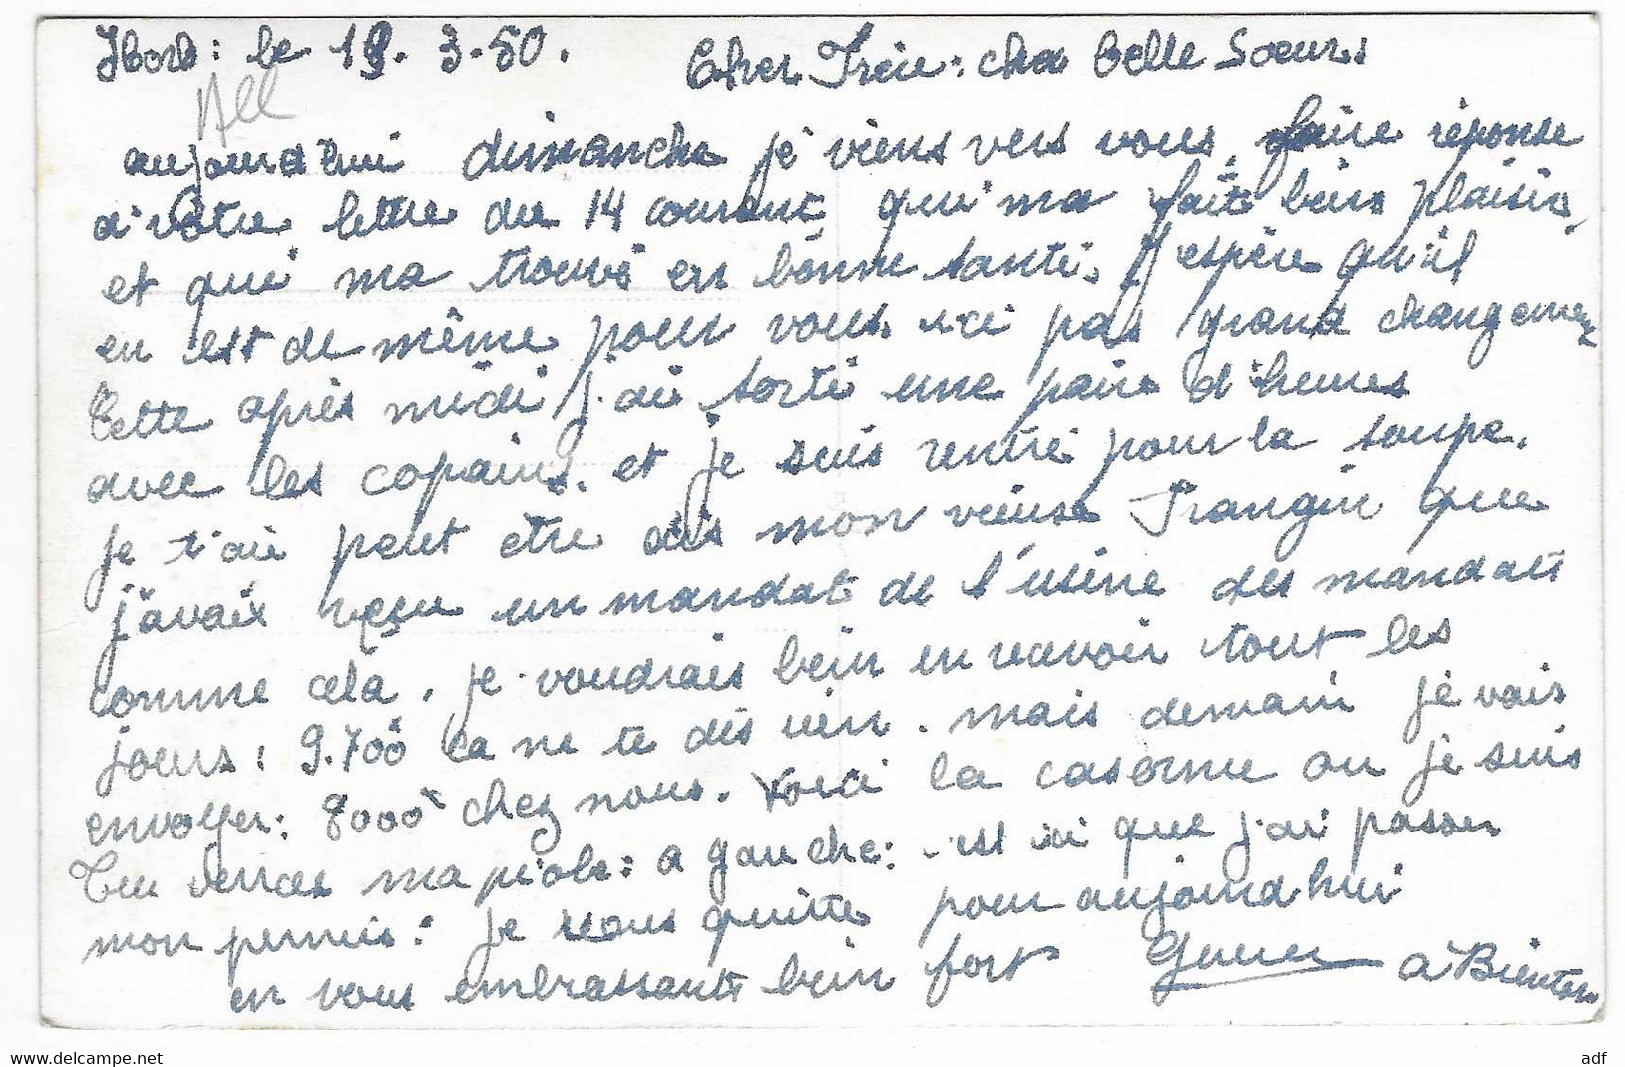 Horb : le 19. 3. 50. Cher Frère : cher Belle Soeur.
All
aujourd'hui dimanche je viens vers vous, faire réponse
a votre lettre du 14 courant, qui ma fait bein plaisir,
et qui ma trouvé en bonne santé. J'espère qu'il
en est de même pour vous. ici pas grand changemen
Cette après midi j'ai sorti une paire d'heures
avec les copains. et je suis rentré pour la soupe.
je t'ai peut être dis mon vieux Frangin que
j'avais reçu un mandat de l'usine des mandats
comme cela. je voudrais bein en recevoir tout les
jours : 9.700 ca ne te dis rien. mais demain je vais
envoyer : 8000 chez nous. voici la caserne ou je suis
Tu verras ma piole : a gauche : est ici que j'ai passer
mon permis. je vous quitte pour aujourd'hui
en vous embrassant bein fort a Bientot
adf